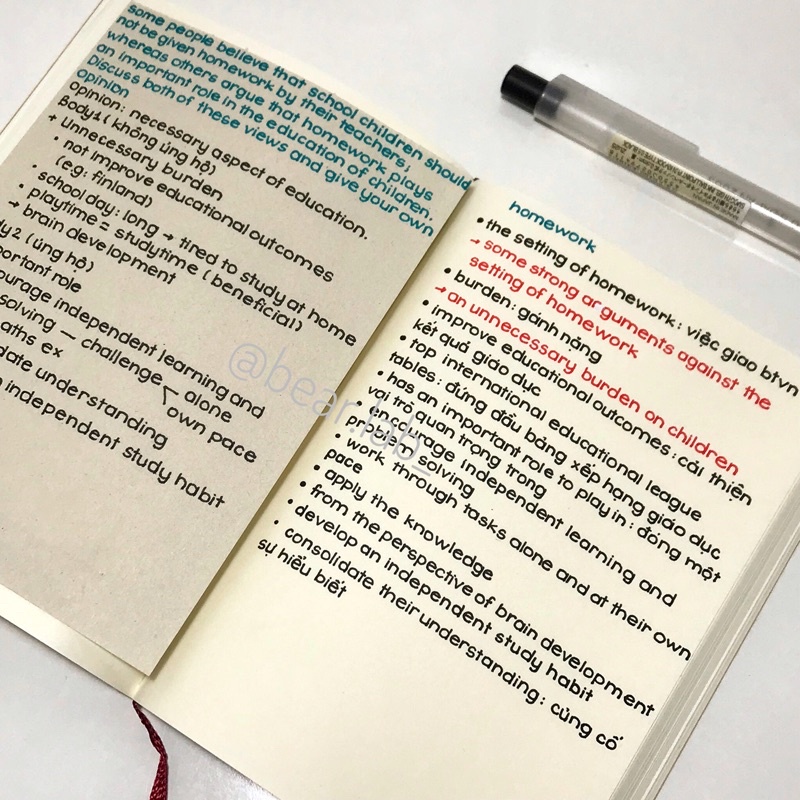 some people believe that school children should
not be given homework by their teachers,
whereas others argue that homework plays
an important role in the education of children.
Discuss both of these views and give your own
opinion
opinion: necessary aspect of education.
Body1 (không ủng hộ)
+ Unnecessary burden
• not improve educational outcomes
(eg: finland)
• school day: long → tired to study at home
• playtime = studytime (beneficial)
→ brain development
2 (ủng hộ)
role
independent learning and
solving — challenge — alone
own pace
ex
understanding
independent study habit
homework
• the setting of homework: việc giao btvn
→ some strong arguments against the
setting of homework
• burden: gánh nặng
→ an unnecessary burden on children
• improve educational outcomes: cải thiện
kết quả giáo dục
• top international educational league
tables: đứng đầu bảng xếp hạng giáo dục
• has an important role to play in: đóng một
vai trò quan trọng trong
• encourage independent learning and
problem solving
• work through tasks alone and at their own
pace
• apply the knowledge
• from the perspective of brain development
• develop an independent study habit
• consolidate their understanding: củng cố
sự hiểu biết
@bear.lab_